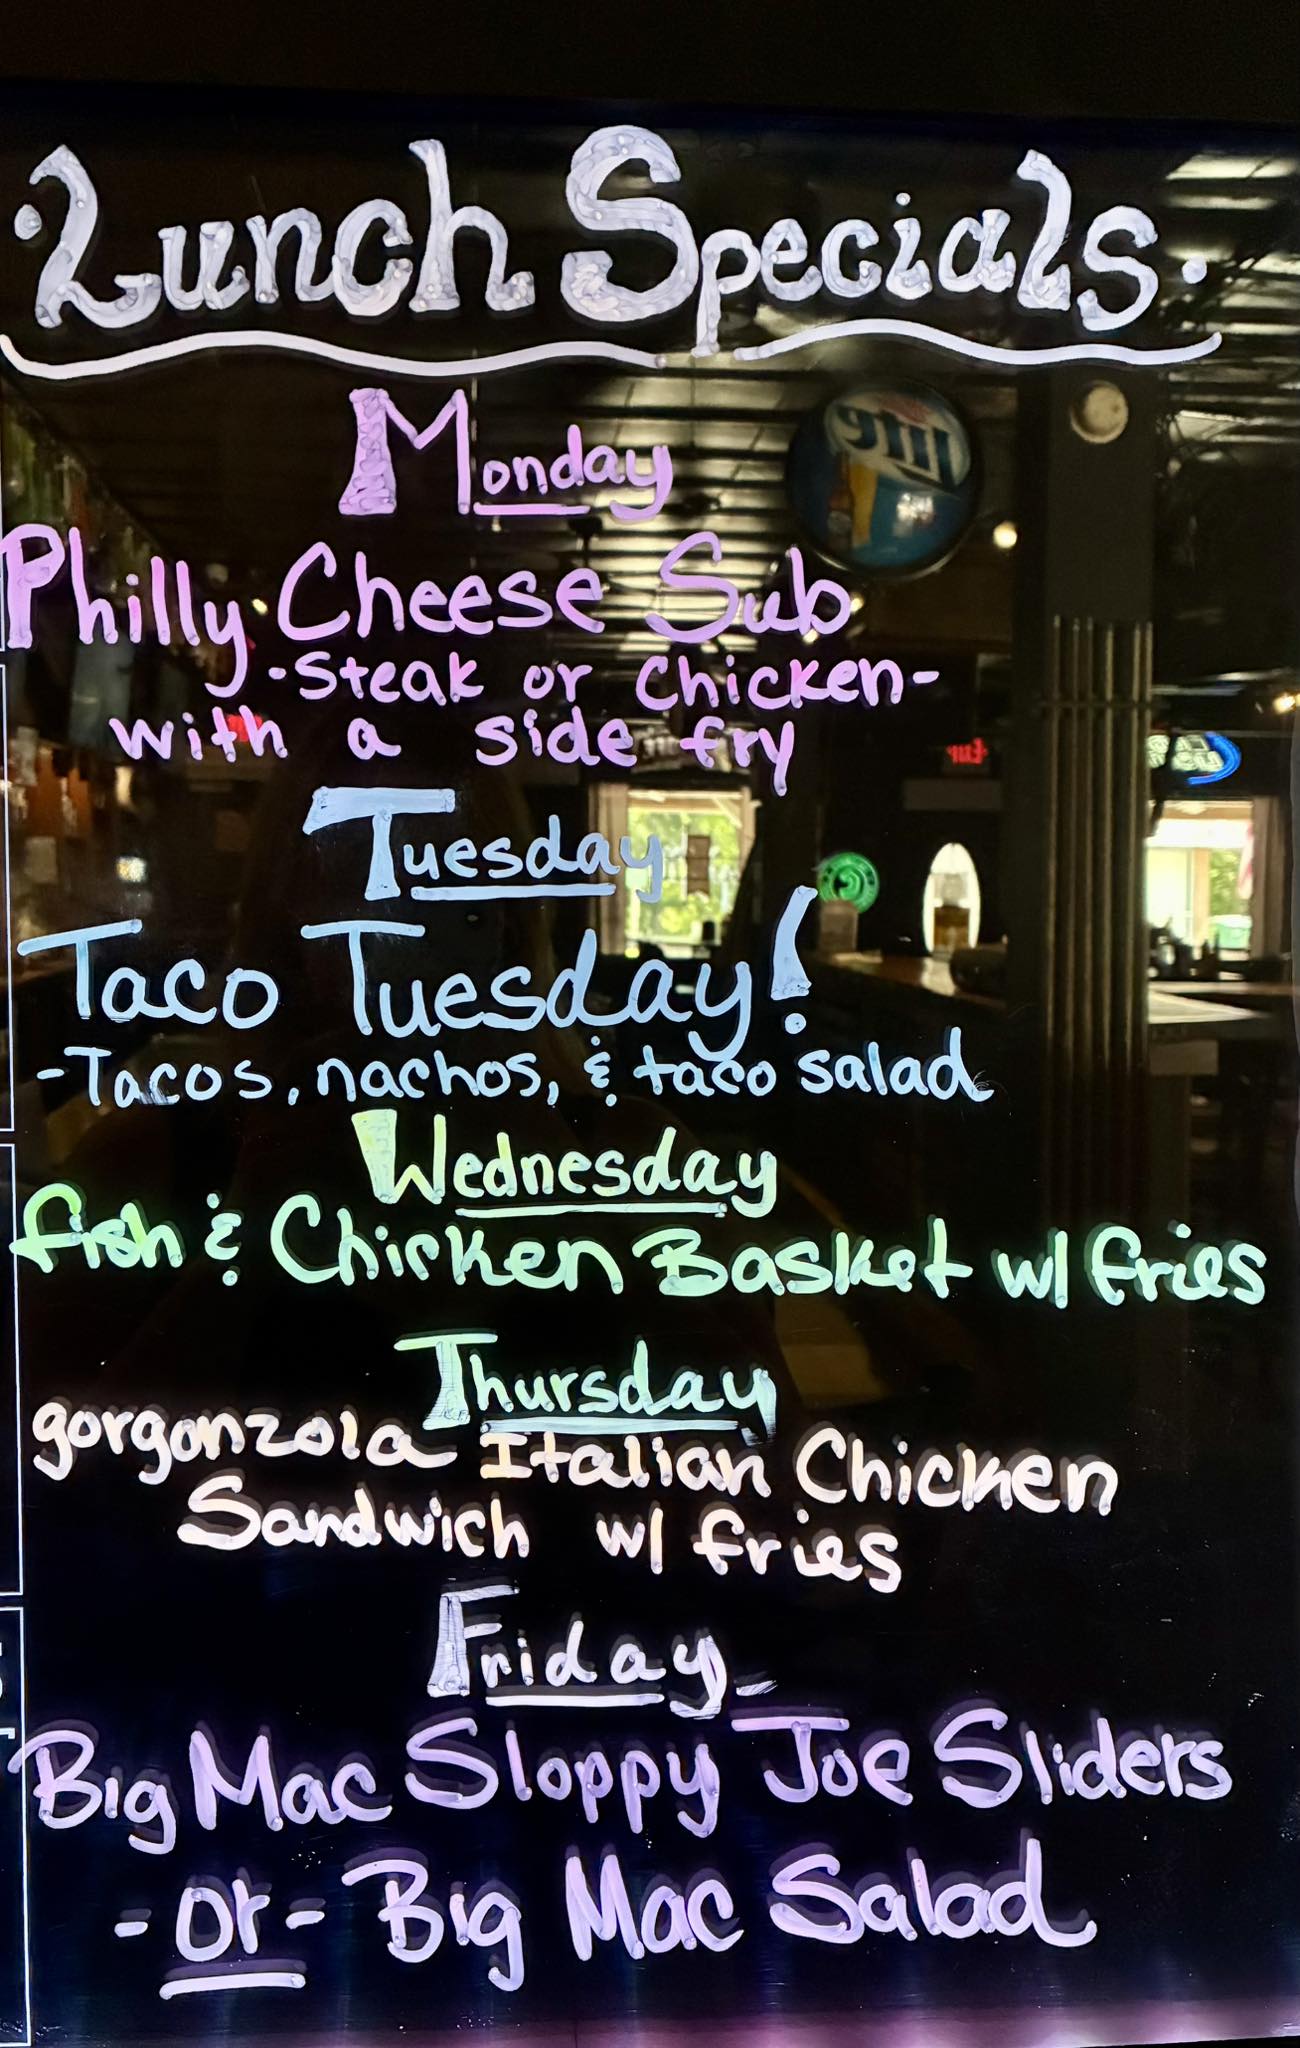 Lunch Specials.
Monday
Philly Cheese Sub
-Steak or Chicken-
with a side fry
Lite
Tuesday
Taco Tuesday!
-Tacos, nachos, & taco salad
Wednesday
fish & Chicken Basket w/ fries
Thursday
gorgonzola Italian Chicken
Sandwich w/ fries
Friday
Big Mac Sloppy Joe Sliders
-or- Big Mac Salad